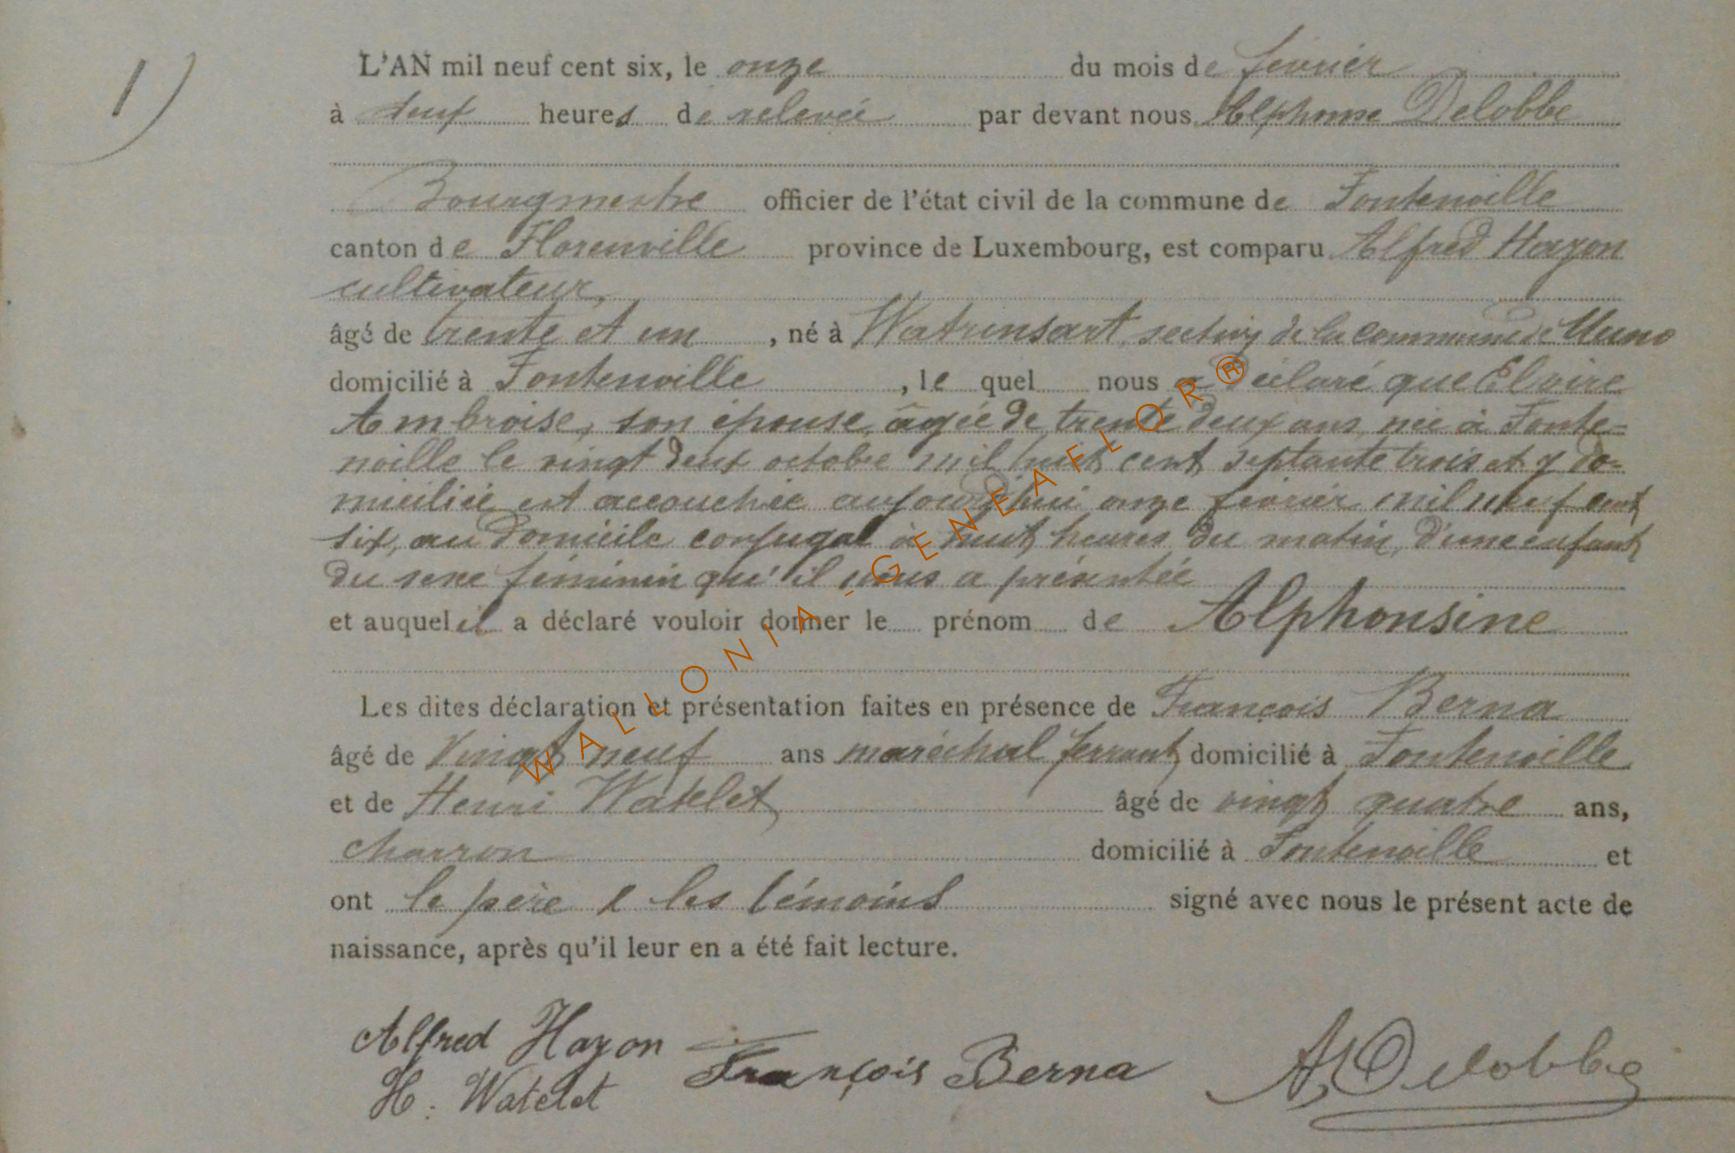 1)
L'AN mil neuf cent six, le onze du mois de février
à deux heures de relevée par devant nous Alphonse Delobbe
Bourgmestre officier de l'état civil de la commune de Fontenoille
canton de Florenville province de Luxembourg, est comparu Alfred Hazon
cultivateur,
âgé de trente et un , né à Watrinsart, section de la commune de Muno
domicilié à Fontenoille , le quel nous a déclaré que Elvire
Ambroise, son épouse, âgée de trente deux ans, née à Fonte=
noille le vingt deux octobre mil huit cent septante trois et y do-
miciliée est accouchée aujourd'hui onze février mil neuf cent
six, au domicile conjugal à huit heures du matin, d'une enfant
du sexe féminin qu'il nous a présentée
et auquel il a déclaré vouloir donner le prénom de Alphonsine
Les dites déclaration et présentation faites en présence de François Berna
âgé de vingt neuf ans maréchal ferrant, domicilié à Fontenoille
et de Henri Watelet, âgé de vingt quatre ans,
charron domicilié à Fontenoille et
ont le père & les témoins signé avec nous le présent acte de
naissance, après qu'il leur en a été fait lecture.
Alfred Hazon François Berna A Delobbe
H. Watelet
WALLONIA - GENEAFLOR®